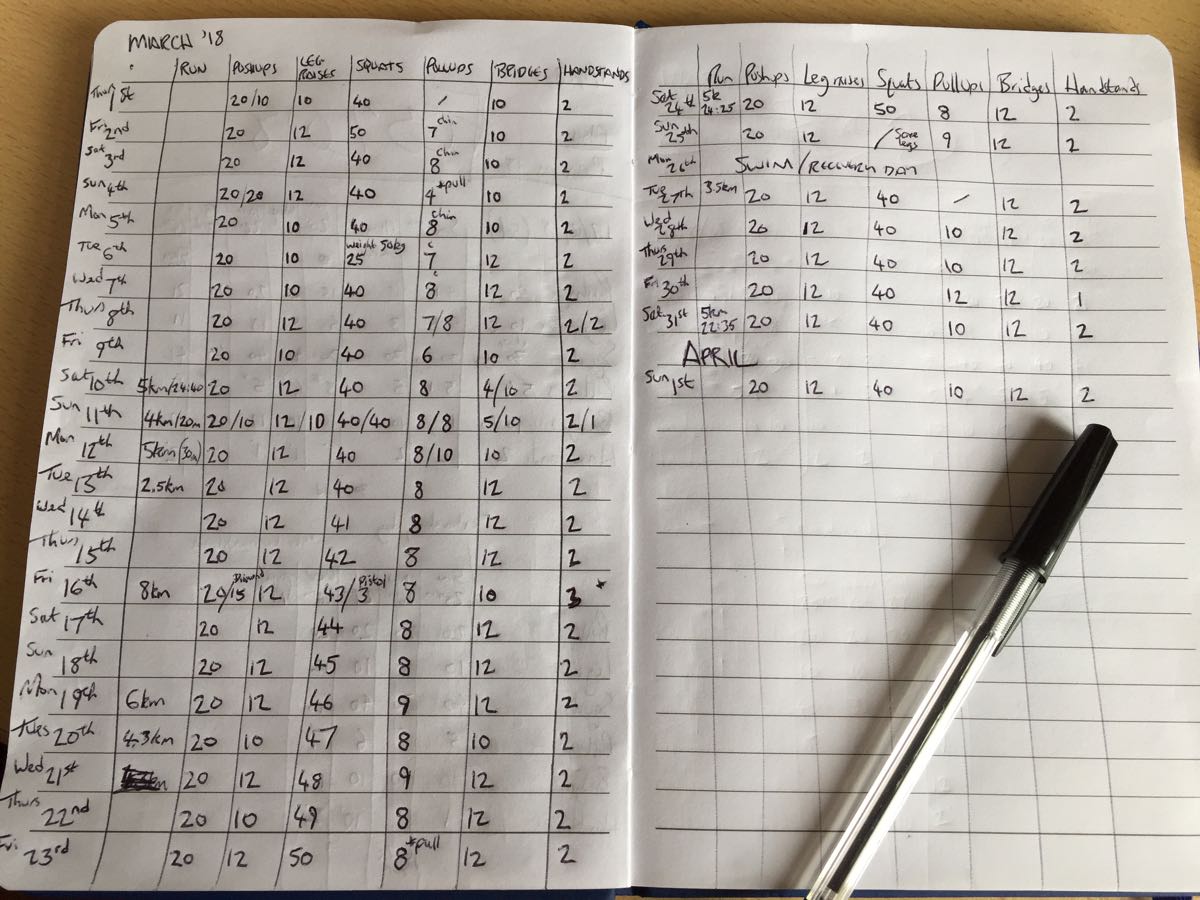 MARCH '18
RUN PUSHUPS LEG RAISES SQUATS PULLUPS BRIDGES HANDSTANDS
Thur 1st 20/10 10 40 / 10 2
Fri 2nd 20 12 50 7 chin 10 2
Sat 3rd 20 12 40 8 chin 10 2
Sun 4th 20/20 12 40 4 *pull 10 2
Mon 5th 20 10 40 8 chin 10 2
Tue 6th 20 10 weight 50kg 25 7 c 12 2
Wed 7th 20 10 40 8 c 12 2
Thurs 8th 20 12 40 7/8 12 2/2
Fri 9th 20 10 40 6 10 2
Sat 10th 5km/24:40 20 12 40 8 4/10 2
Sun 11th 4km/20m 20/10 12/10 40/40 8/8 5/10 2/1
Mon 12th 5km (30m) 20 12 40 8/10 10 2
Tue 13th 2.5km 20 12 40 8 12 2
Wed 14th 20 12 41 8 12 2
Thurs 15th 20 12 42 8 12 2
Fri 16th 8km 20/15 Diamond 12 43/3 Pistol 8 10 3 *
Sat 17th 20 12 44 8 12 2
Sun 18th 20 12 45 8 12 2
Mon 19th 6km 20 12 46 9 12 2
Tues 20th 4.3km 20 10 47 8 10 2
Wed 21st 20 12 48 9 12 2
Thurs 22nd 20 10 49 8 12 2
Fri 23rd 20 12 50 8 *pull 12 2
Run Pushups Leg raises Squats Pullups Bridges Handstands
Sat 24th 5k 24:25 20 12 50 8 12 2
Sun 25th 20 12 / Sore legs 9 12 2
Mon 26th SWIM/RECOVERY DAY
Tue 27th 3.5km 20 12 40 / 12 2
Wed 28th 20 12 40 10 12 2
Thurs 29th 20 12 40 10 12 2
Fri 30th 20 12 40 12 12 1
Sat 31st 5km 22:35 20 12 40 10 12 2
APRIL
Sun 1st 20 12 40 10 12 2